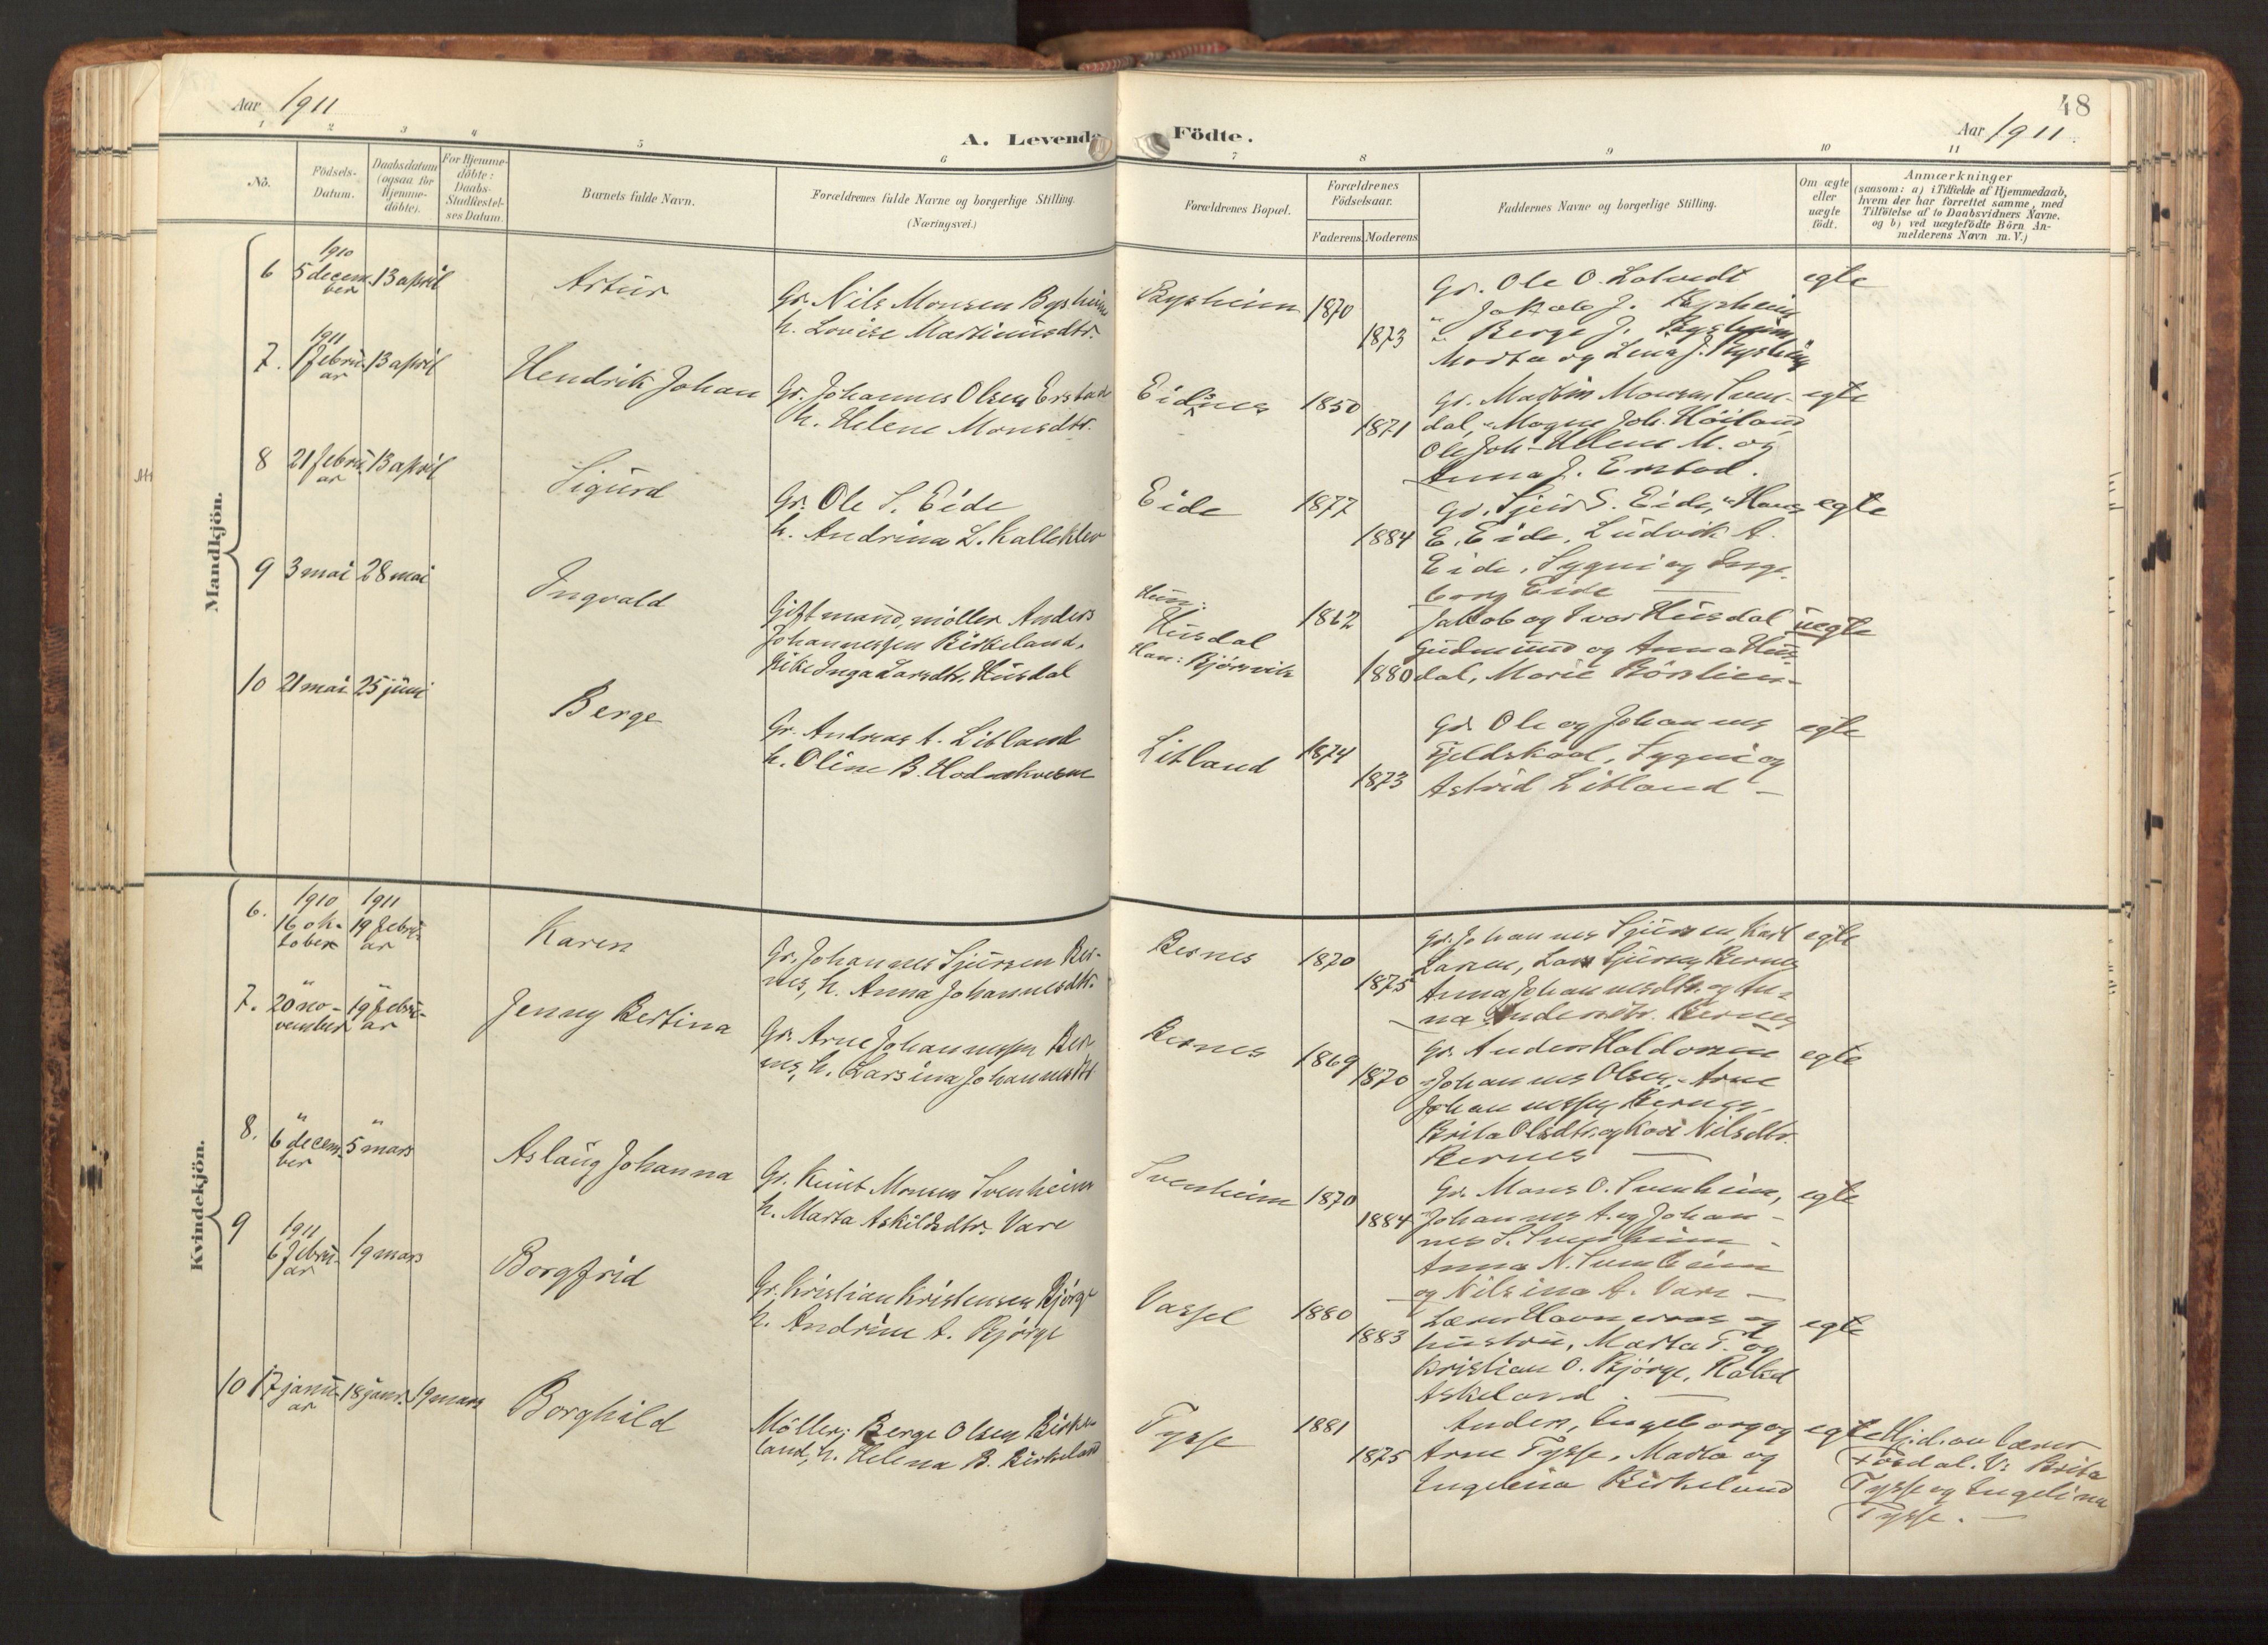 Aar 1911
A. Levende Födte.
48
Aar 1911
1 2 3 4 5 6 7 8 9 10 11
No.
Födsels-
Datum.
Daabsdatum
(ogsaa for
Hjemme-
döbte).
For Hjemme-
döbte:
Daabs-
Stadfæstel-
ses Datum.
Barnets fulde Navn.
Forældrenes fulde Navne og borgerlige Stilling.
(Næringsvei.)
Forældrenes Bopæl.
Forældrenes
Födselsaar.
Faderens. Moderens.
Faddernes Navne og borgerlige Stilling.
Om ægte
eller
uægte
födt.
Anmærkninger
(saasom: a) i Tilfælde af Hjemmedaab,
hvem der har forrettet samme, med
Tilföielse af to Daabsvidners Navne,
og b) ved uægtefödte Börn An-
melderens Navn m. V.)
Mandkjön.
6
1910
5 decem-
ber
13 april
Artur
Gr. Nils Monsen Bysheim
h. Lovise Martinusdtr.
Bysheim
1870
1873
Gr. Ole O. Lotvedt
" Jakob J. Bysheim
" Berge J. Bysheim
Marta og Lena J. Bysheim
egte
7.
1911
1 febru-
ar
13 april
Hendrik Johan
Gr. Johannes Olsen Erstad
h. Helene Monsdtr.
Eidsnes
1850
1871
Gr. Martin Monsen Sven-
dal, " Magne Joh. Höiland
Ole Joh- Helene M. og
Anna J. Erstad.
egte
8
21 febru-
ar
13 april
Sigurd
Gr. Ole S. Eide
h. Andrina L. Kalleklev
Eide
1877
1884
Gr. Sjur S. Eide, " Hans
E. Eide, Ludvik A.
Eide, Sygni og Inge-
borg Eide
egte
9
3 mai
28 mai
Ingvald
Gift mand, møller Anders
Johannessen Birkeland,
Pike Inga Larsdtr. Husdal
Hun:
Husdal
Han: Bjørsvik
1862
1880
Jakob og Ivar Husdal
Gudmund og Anna Hus-
dal, Marie Börslien-
uegte
10
21 mai
25 juni
Berge
Gr. Andreas A. Litland
h. Oline B. Hodnekvam
Litland
1874
1873
Gr. Ole og Johannes
Fjeldskaal, Sygni og
Astrid Litland -
egte
Kvindekjön.
6.
1910
16 ok-
tober
1911
19 febru-
ar
Karen
Gr. Johannes Sjursen Ber-
nes, h. Anna Johannesdtr.
Bernes
1870
1875
Gr. Johannes Sjursen, Karl
Larsen, Lars Sjursen Bernes
Anna Johannesdtr. og An-
na Andersdtr. Bernes
egte
7.
"
20 no-
vember
"
19 febru-
ar
Jenny Bertina
Gr. Arne Johannessen Ber
nes, h. Larsina Johannesdtr
Bernes
1869
1870
Gr. Anders Haldorsen
" Johannes Olsen, - Arne
Johannessen Bernes,
Brita Olsdtr. og Kari Nilsdtr.
Bernes
egte
8.
"
6 decem-
ber
"
5 mars
Aslaug Johanna
Gr. Knut Monsen Svenheim
h. Marta Askildsdtr. Vare
Svenheim
1870
1884
Gr. Mons O. Svenheim,
" Johannes A. og Johan-
nes S. Svenheim -
Anna N. Svenheim
og Nilsina A. Vare -
egte
9
1911
6 febru-
ar
19 mars
Borgfrid
Gr. Kristian Kristensen Bjørge
h. Andrine A. Bjørge
Vassel
1880
1883
Lærer Havneraas og
hustru, Marta T. og
Kristian O. Bjørge, Rakel
Askeland.
egte
10
17 janu-
ar
18 janr.
19 mars
Borghild
Möller: Berge Olsen Birke-
land, h. Helena B. Birkeland
Tysse
1881
1875
Anders, Ingeborg og
Arne Tysse, Marta og
Ingelina Birkeland
egte
Hj. d. av Lærer
Fosdal. V: Brita
Tysse og Engelina
Tysse. -